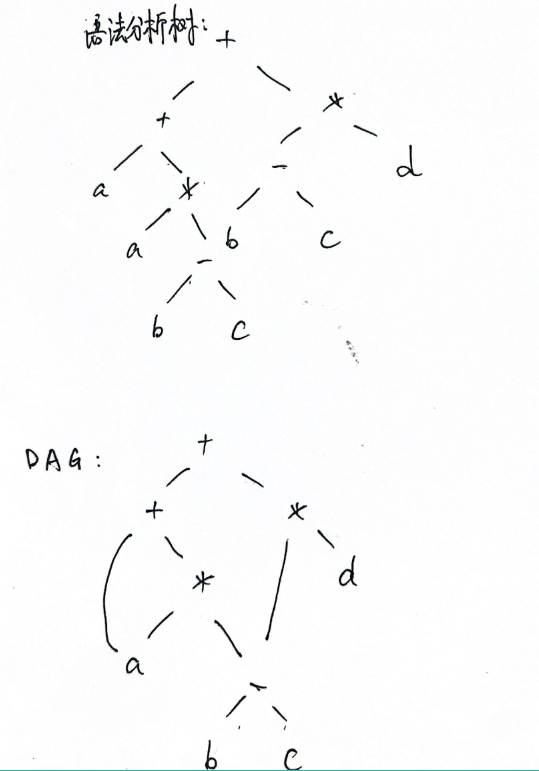 语法分析树: +
+ *
a * - d
a - b c
b c
DAG:
+
+ *
* d
a
-
b c